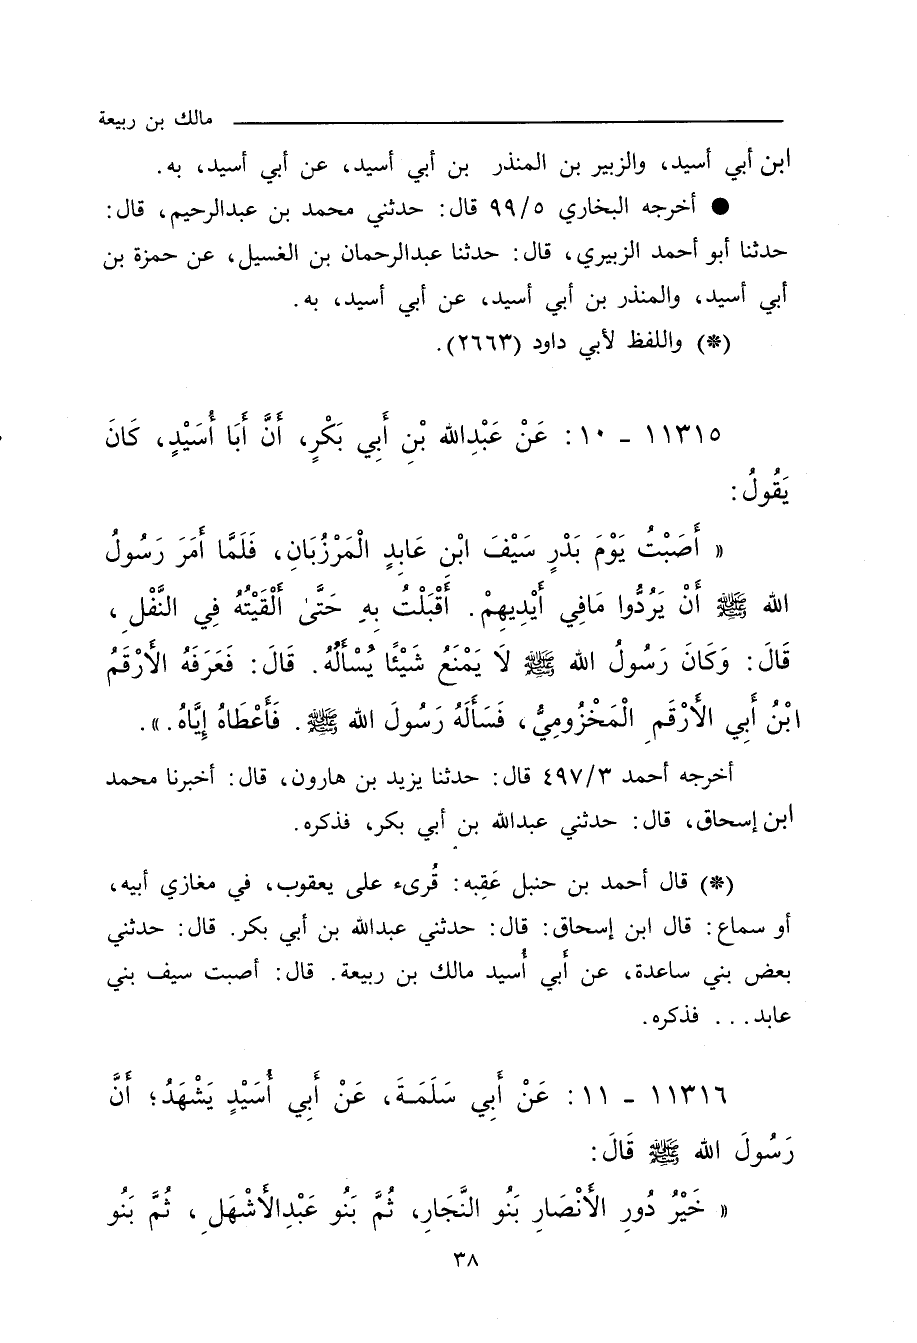 مالك بن ربيعة
ابن أبي أسيد، والزبير بن المنذر بن أبي أسيد، عن أبي أسيد، به.
● أخرجه البخاري ٩٩/٥ قال: حدثني محمد بن عبدالرحيم، قال:
حدثنا أبو أحمد الزبيري، قال: حدثنا عبدالرحمان بن الغسيل، عن حمزة بن
أبي أسيد، والمنذر بن أبي أسيد، عن أبي أسيد، به.
(*) واللفظ لأبي داود (٢٦٦٣).
١١٣١٥ - ١٠: عَنْ عَبْدِالله بْنِ أَبي بَكْرٍ، أَنَّ أَبَا أُسَيْدٍ، كَانَ
يَقُولُ:
« أَصَبْتُ يَوْمَ بَدْرٍ سَيْفَ ابْنِ عَابِدٍ الْمَرْزُبَانِ، فَلَمَّا أَمَرَ رَسُولُ
الله ﷺ أَنْ يَرُدُّوا مَافِي أَيْدِيهِمْ. أَقْبَلْتُ بِهِ حَتَّىٰ أَلْقَيْتُهُ فِي النَّفْلِ،
قَالَ: وَكَانَ رَسُولُ الله ﷺ لَا يَمْنَعُ شَيْئًا يُسْأَلُهُ. قَالَ: فَعَرَفَهُ الأَرْقَمُ
ابْنُ أَبِي الأَرْقَمِ الْمَخْزُومِيُّ، فَسَأَلَهُ رَسُولَ الله ﷺ. فَأَعْطَاهُ إِيَّاهُ.».
أخرجه أحمد ٤٩٧/٣ قال: حدثنا يزيد بن هارون، قال: أخبرنا محمد
ابن إسحاق، قال: حدثني عبدالله بن أبي بكر، فذكره.
(*) قال أحمد بن حنبل عَقِبه: قُرىء على يعقوب، في مغازي أبيه،
أو سماع: قال ابن إسحاق: قال: حدثني عبدالله بن أبي بكر. قال: حدثني
بعض بني ساعدة، عن أَبي أُسيد مالك بن ربيعة. قال: أصبت سيف بني
عابد... فذكره.
١١٣١٦ - ١١: عَنْ أَبِي سَلَمَةَ، عَنْ أَبِي أُسَيْدٍ يَشْهَدُ؛ أَنَّ
رَسُولَ الله ﷺ قَالَ:
« خَيْرُ دُورِ الأَنْصَارِ بَنُو النَّجَارِ، ثُمَّ بَنُو عَبْدِالأَشْهَلِ، ثُمَّ بَنُو
٣٨